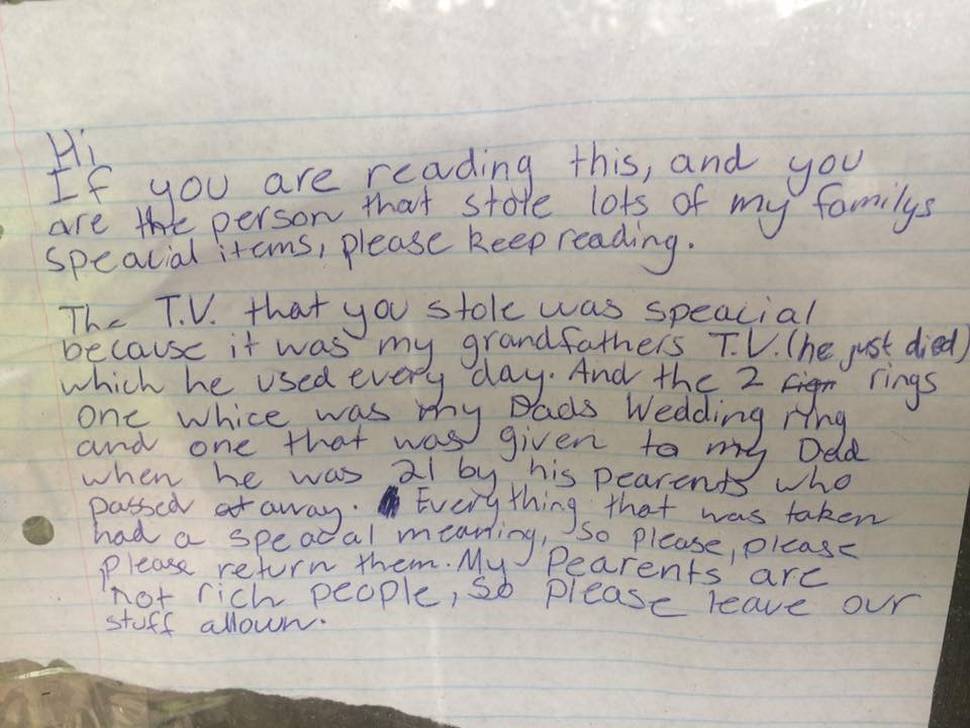 Hi,
If you are reading this, and you
are the person that stole lots of my familys
speacial items, please keep reading.
The T.V. that you stole was speacial
because it was my grandfathers T.V. (he just died)
which he used every day. And the 2 rings
one whice was my Dads Wedding ring
and one that was given to my Dad
when he was 21 by his pearents who
passed away. Everything that was taken
had a speacal meaning, so please, please
please return them. My Pearents are
not rich people, so please leave our
stuff allown.